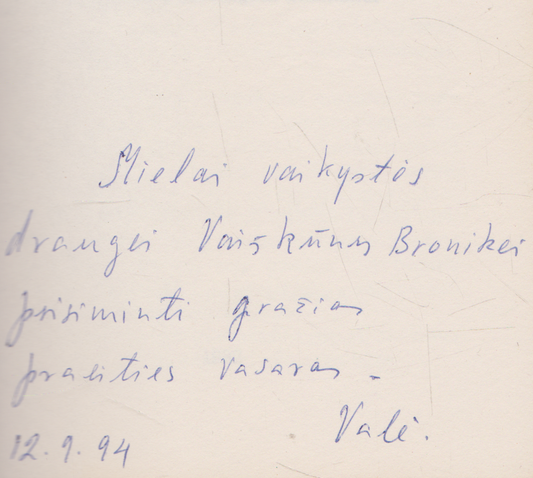 Mielai vaikystės
draugei Vaiškūnų Bronikei
prisiminti gražias
praeities vasaras.
Valė.
12.9.94